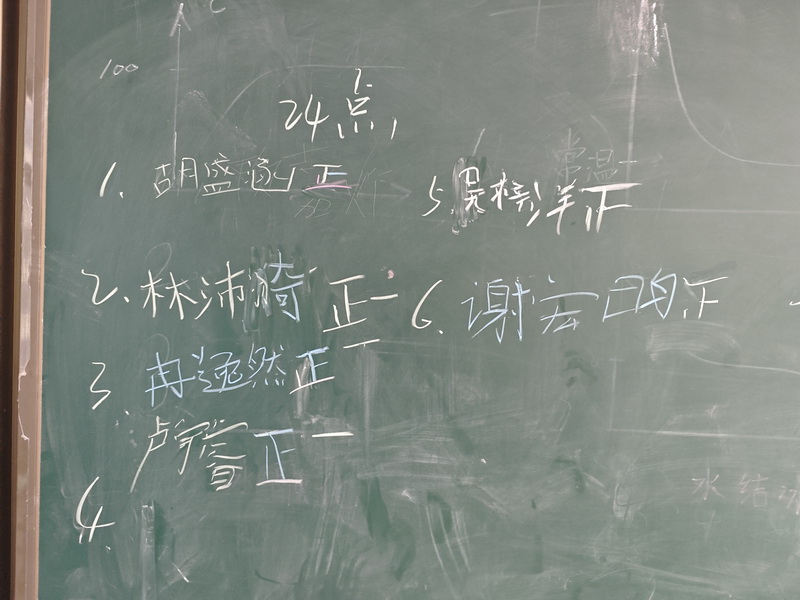 100
24点
1. 胡盛涵 正
2. 林沛 正一
3. 冉逸然 正一
4. 卢宇睿 正一
5. 吴梓洋 正
6. 谢宏昀 正
常温
水结冰